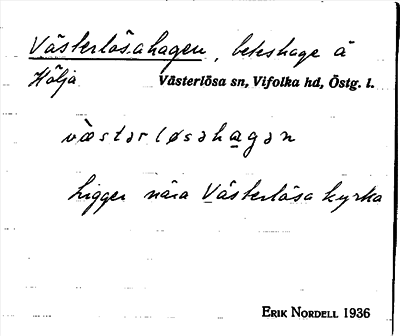 Västerlösahagen, beteshage å
Hölja Västerlösa sn, Vifolka hd, Östg. l.
væstərløsahagən
Ligger nära Västerlösa kyrka
ERIK NORDELL 1936